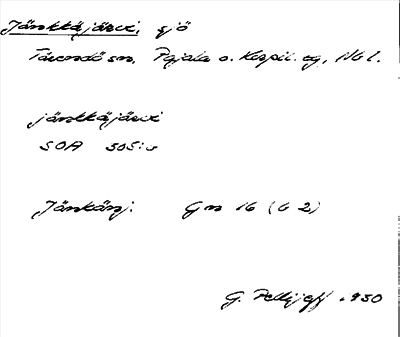 Jänkkäjärvi, sjö
Tärendö sn, Pajala o. Korpil. tg, Nb l.
jänkkäjärvi
SOA 505:
Jänkänj: Gm 16 (62)
G. Pellijeff 1950